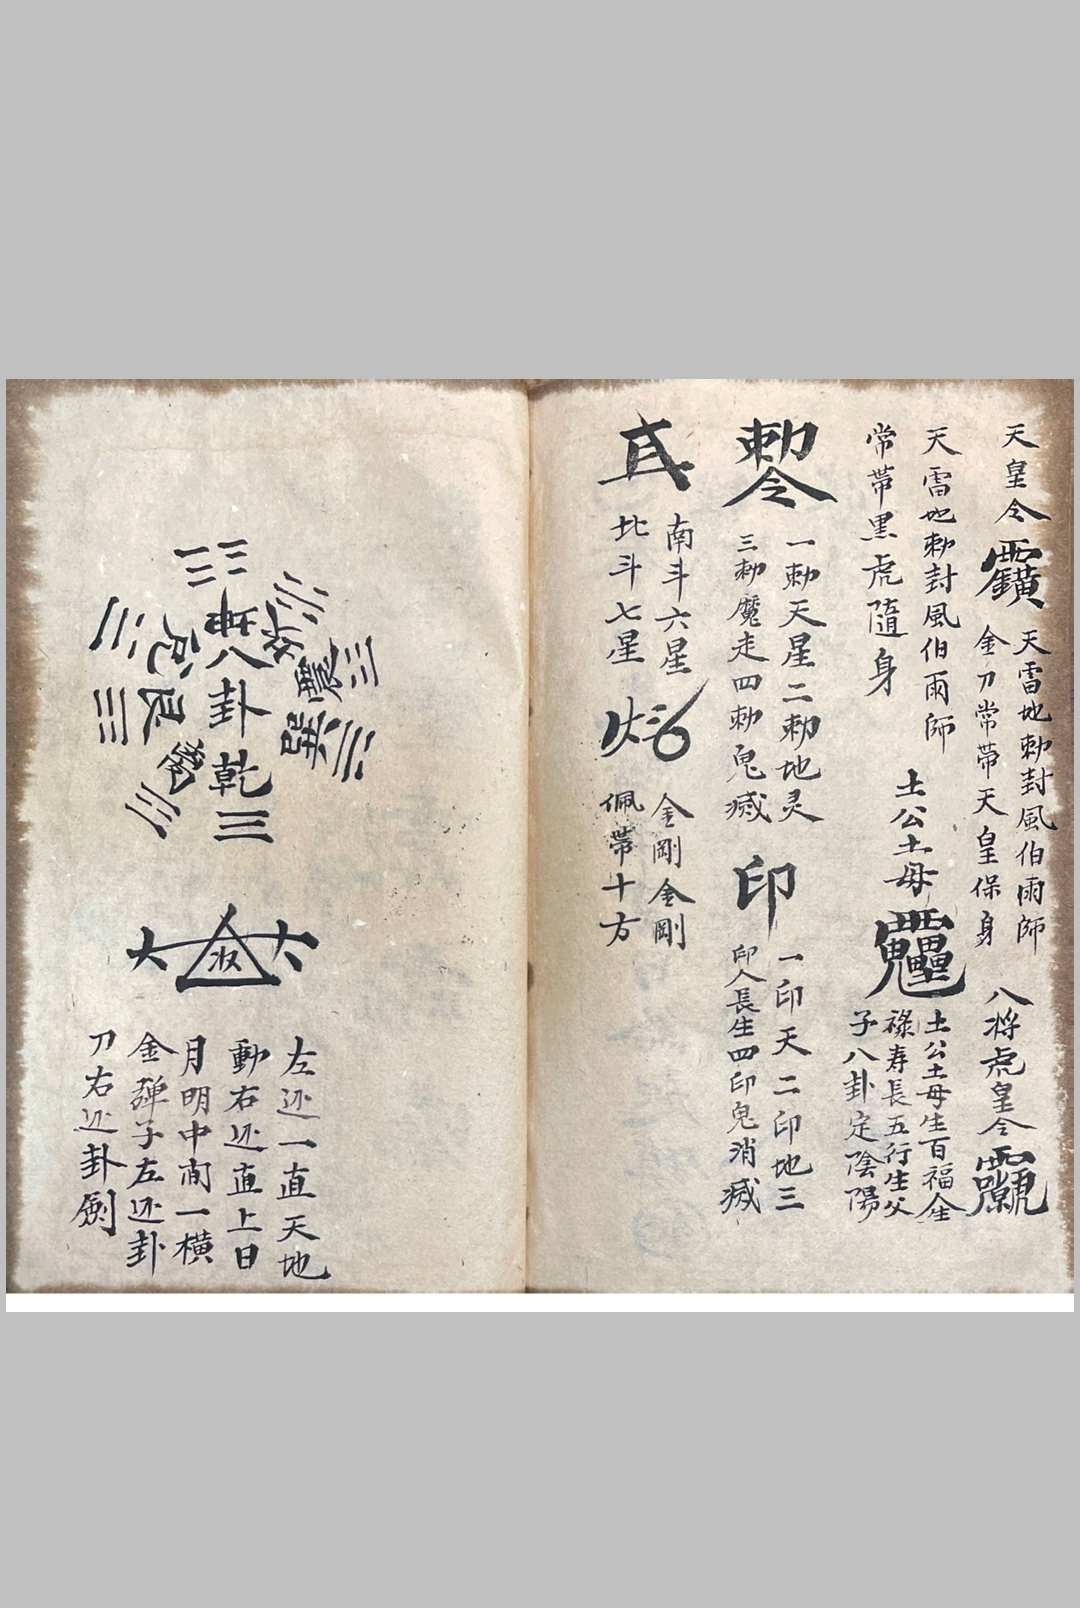 天皇令
天雷地勅封風伯雨師
金刀常帶天皇保身
八將虎皇令
天雷地勅封風伯雨師
常帶黑虎隨身
土公土母
土公土母生百福人生
祿寿長五行生父
子八卦定陰陽
勅令
一勅天星二勅地灵
三勅魔走四勅鬼滅
印
一印天二印地三
印人長生四印鬼消滅
南斗六星
北斗七星
金剛金剛
佩帶十方
坤
坎
兌
震
艮
巽
離
八卦
乾
六
六
左还一直天地
動右还直上日
月明中间一橫
金弹子左还卦
刀右还卦劍